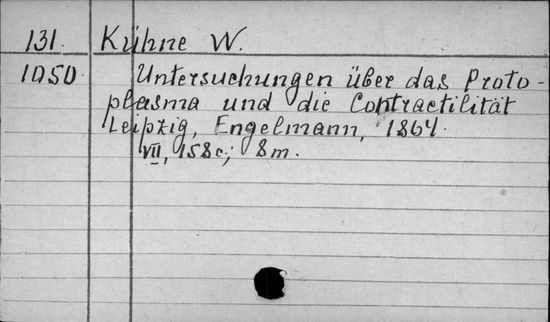 131. Kühne W.
1050. Untersuchungen über das Proto-
plasma und die Contractilität
Leipzig, Engelmann, 1864.
VII, 158c; 8m.